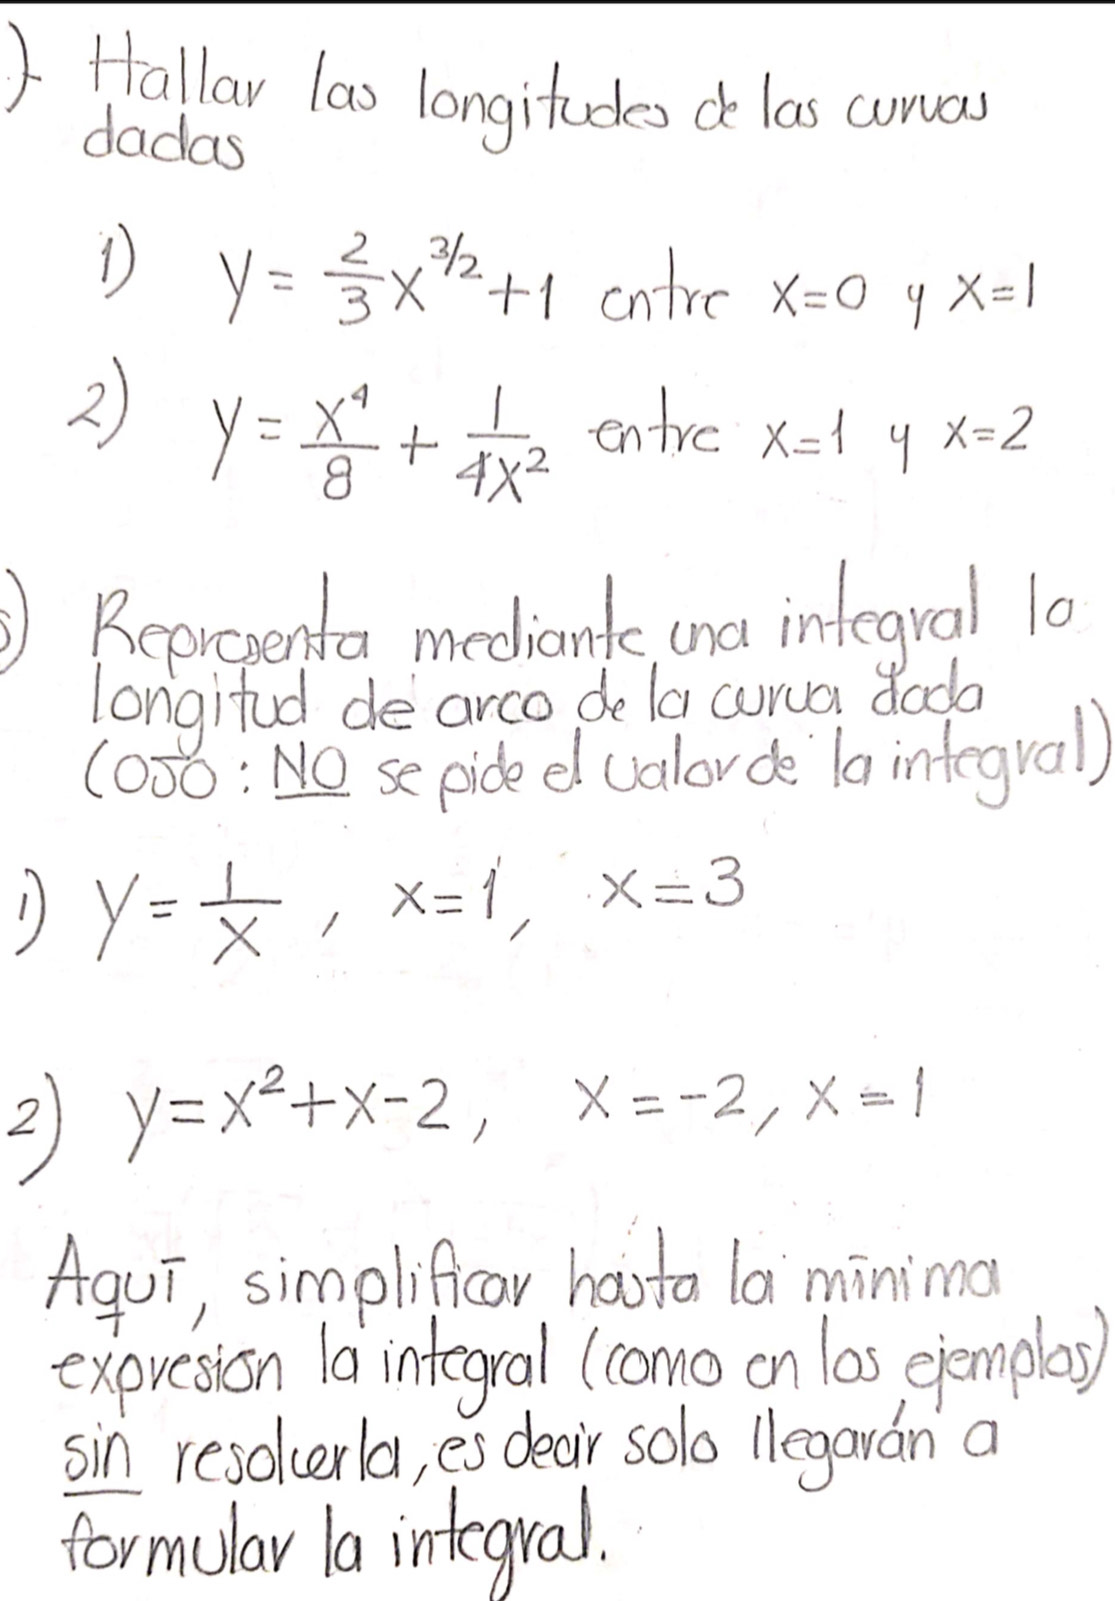 ) Hallar las longitudes de las curvas
dadas
1) y = 2/3 x^3/2 + 1 entre x=0 y x=1
2) y = x^4/8 + 1/4x^2 entre x=1 y x=2
) Representa mediante una integral la
longitud de arco de la curva dada
(OJO: NO se pide el valor de la integral)
1) y = 1/x , x=1, x=3
2) y=x^2+x-2, x=-2, x=1
Aquí, simplificar hasta la mínima
expresión la integral (como en los ejemplos)
sin resolverla, es decir solo llegarán a
formular la integral.